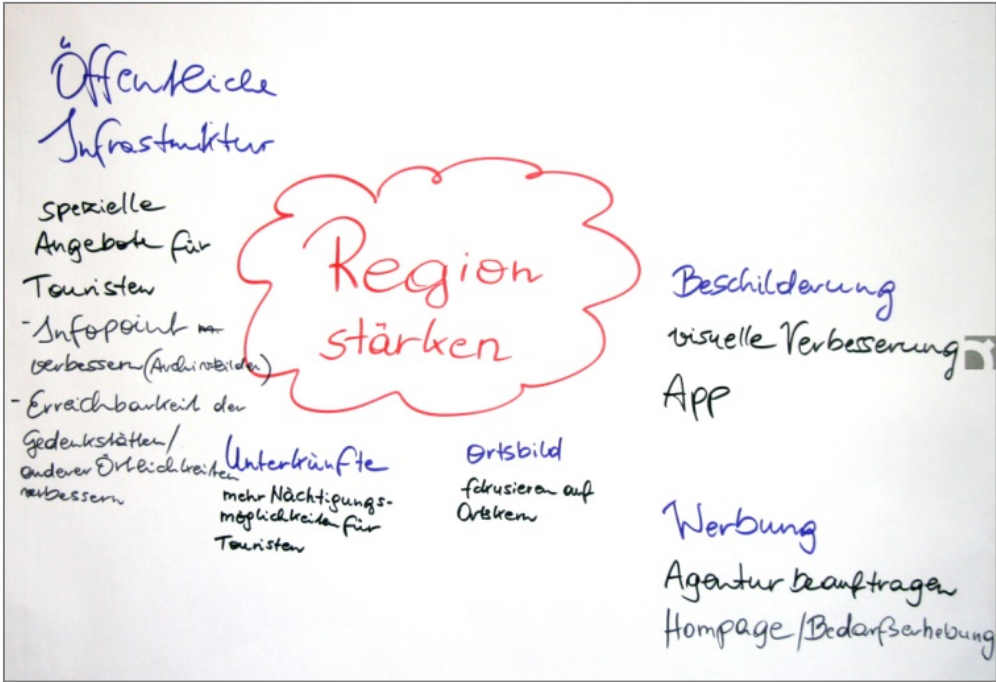 Öffentliche
Infrastruktur
spezielle
Angebote für
Touristen
- Infopoint
verbessern (Archivbilder)
- Erreichbarkeit der
Gedenkstätten/
anderer Örtlichkeiten
verbessern
Region
stärken
Unterkünfte
mehr Nächtigungs-
möglichkeiten für
Touristen
Ortsbild
fokusieren auf
Ortskern
Beschilderung
visuelle Verbesserung
App
Werbung
Agentur beauftragen
Hompage/Bedarfserhebung